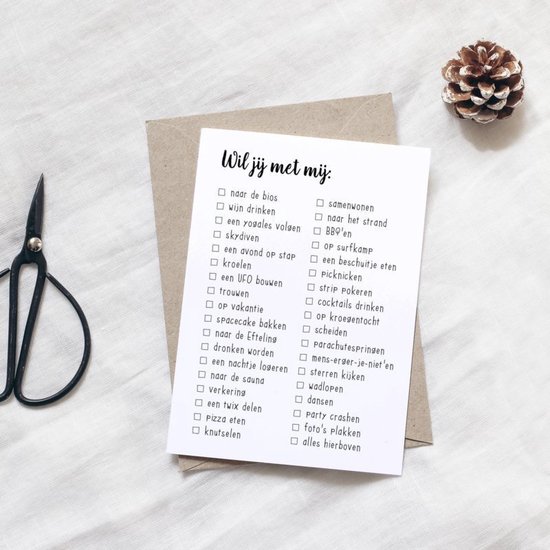 Wil jij met mij:
naar de bios
wijn drinken
een yogales volgen
skydiven
een avond op stap
kroelen
een UFO bouwen
trouwen
op vakantie
spacecake bakken
naar de Efteling
dronken worden
een nachtje logeren
naar de sauna
verkering
een twix delen
pizza eten
knutselen
samenwonen
naar het strand
BBQ'en
op surfkamp
een beschuitje eten
picknicken
strip pokeren
cocktails drinken
op kroegentocht
scheiden
parachutespringen
mens-erger-je-niet'en
sterren kijken
wadlopen
dansen
party crashen
foto's plakken
alles hierboven